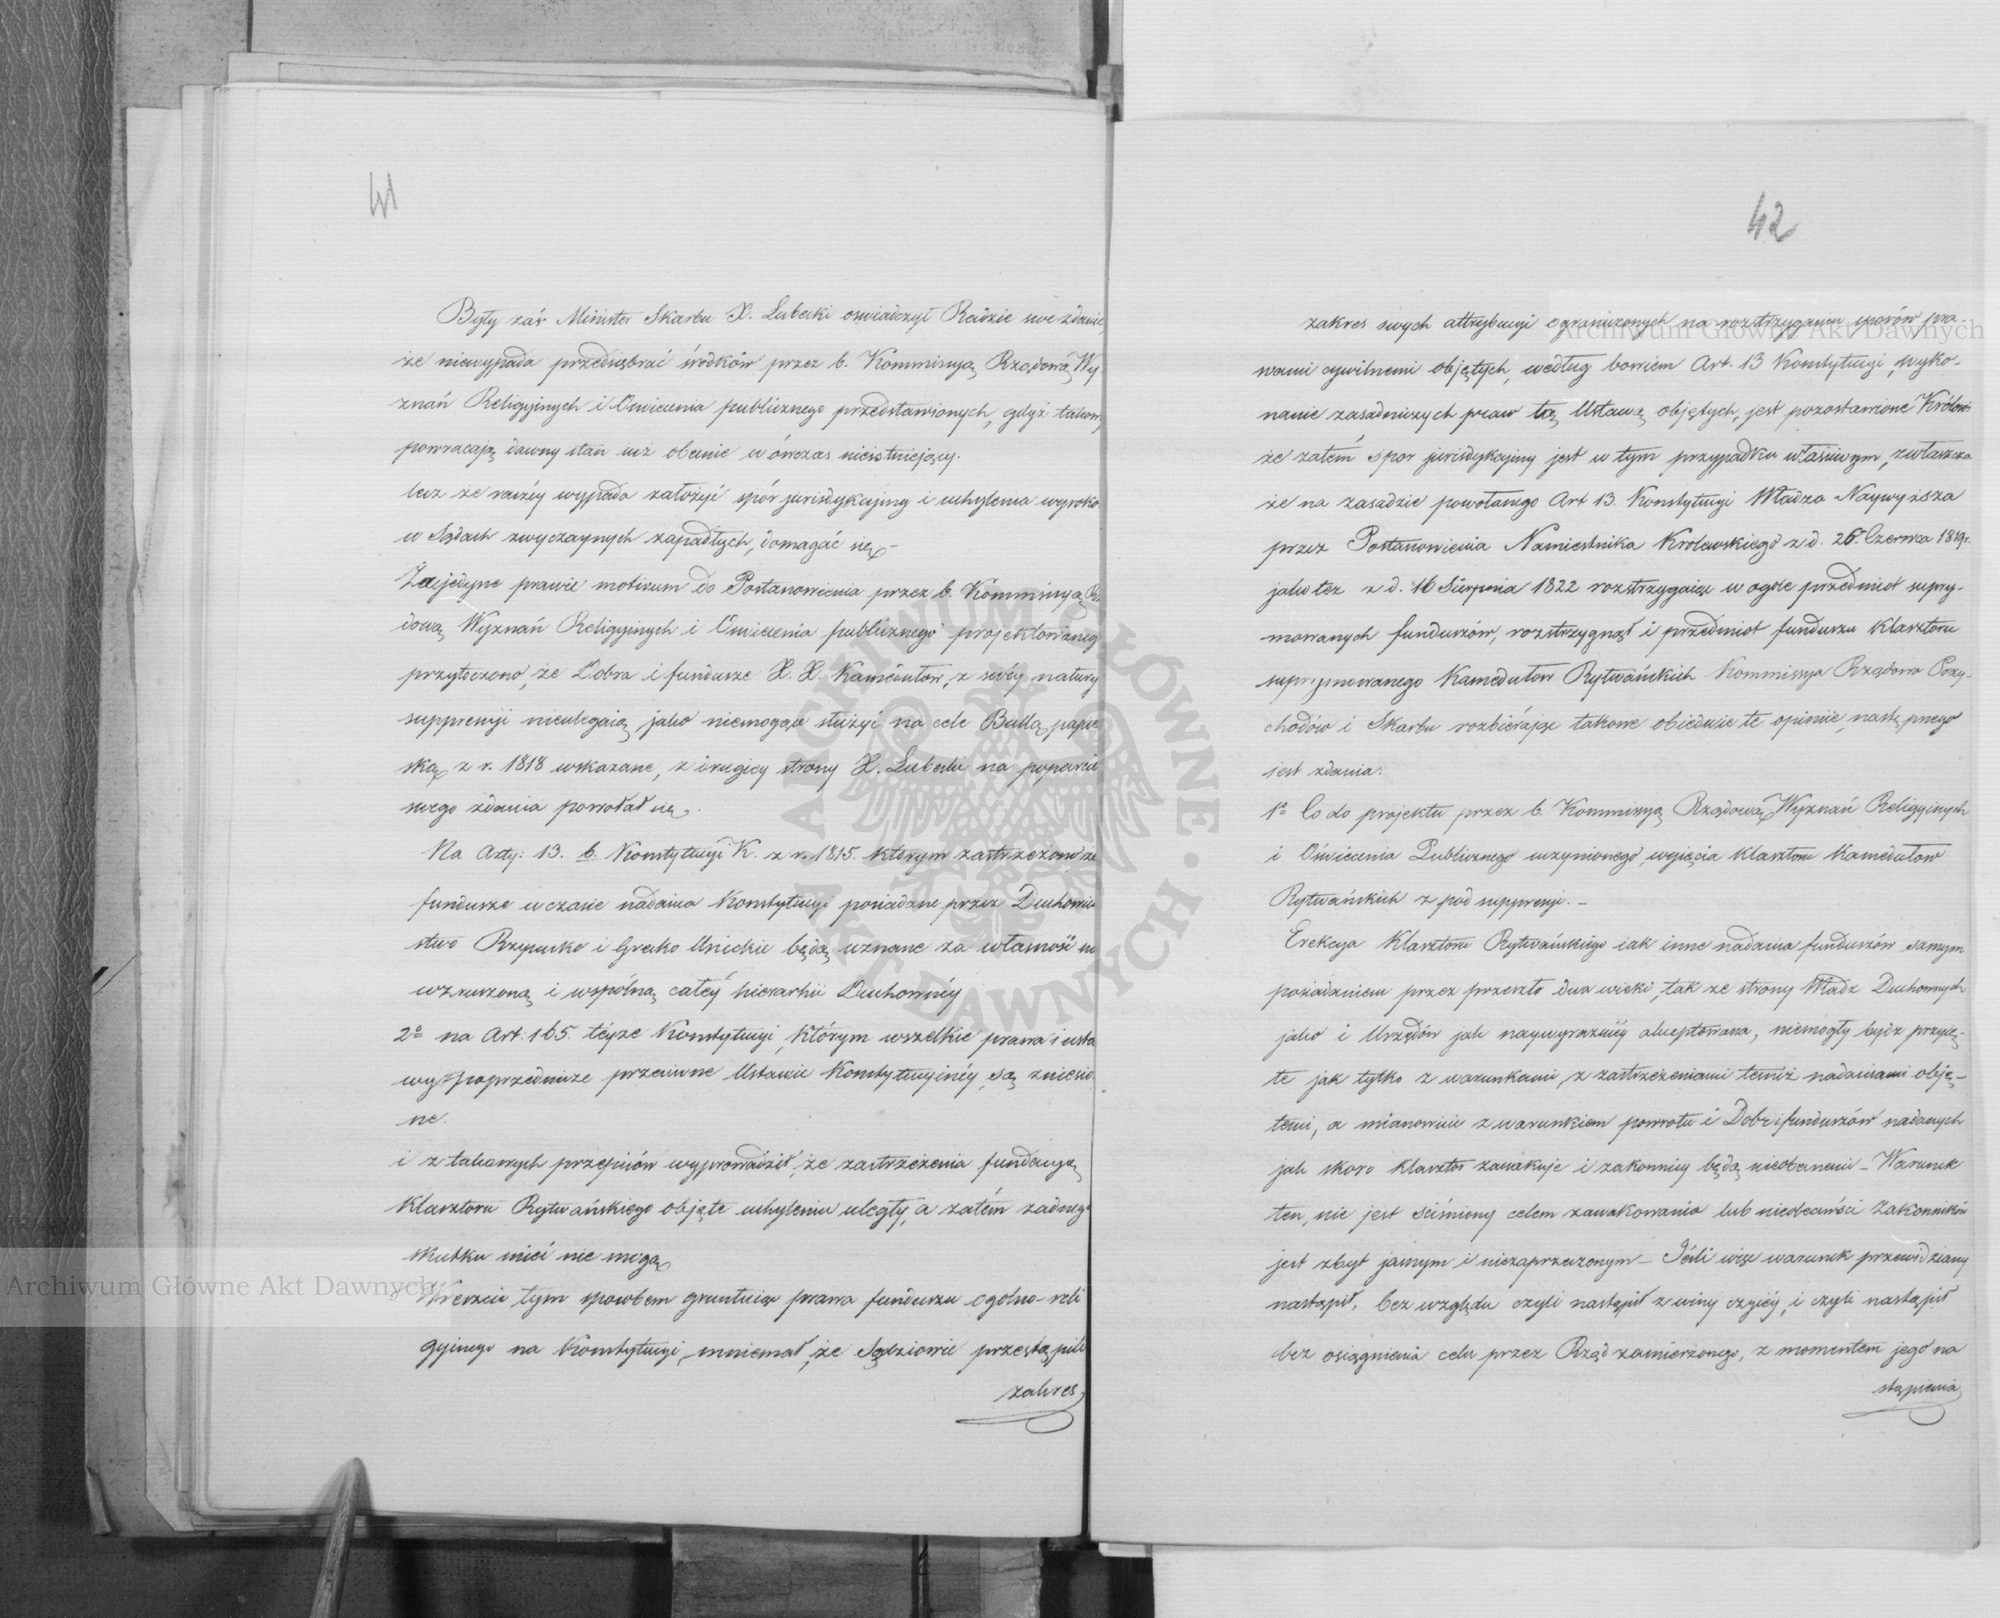 41
Były zaś Minister Skarbu X. Lubecki oświadczył Radzie swe zdanie
że niewypada przedsiębrać środków przez b. Kommissyą Rządową Wy
znań Religijnych i Oświecenia publicznego przedstawionych, gdyż takowe
powracają dawny stan już obecnie wówczas nieistniejący.
lecz że raczéy wypada założyć spór jurisdykcyjny i uchylenia wyroko
w Sądach zwyczaynych zapadłych, domagać się,-
Za jedyne prawie motivum do Postanowienia przez b. Kommissyą Rz
dową Wyznań Religijnych i Oświecenia publicznego projektowaneg
przytoczono, że Dobra i fundusze X. X. Kamedułów, z swéy natury
suppressyi nieulegają jako niemogące służyć na cele Bullą papie
ską z r. 1818 wskazane, z drugiey strony X. Lubecki na poparcie
swego zdania powołał się,.
Na Arty: 13. b. Konstytucyi K. z r. 1815. którym zastrzeżono że
fundusze w czasie nadania Konstytucyi posiadane przez Duchowie
stwo Rzymsko i Grecko Unickie będą uznane za własność nie
wzruszoną i wspólną całéy hierarhii Duchownéy
2º na Art. 165. téyże Konstytucyi, którym wszelkie prawa i usta
wy poprzednicze przeciwne Ustawie Konstytucyinéy, są zniesio
ne.
i z takowych przepisów wyprowadził, że zastrzeżenia fundacyą
Klasztoru Rytwańskiego objęte uchyleniu uległy, a zatém żadnego
skutku mieć nie mogą
Wreszcie tym sposobem gruntując prawa funduszu ogólno-reli
gyinego na Konstytucyi, mniemał, że Sędziowie przestąpili
zakres
42
zakres swych attrybucyi ograniczonych na rozstrzyganiu sporów pra-
wami cywilnemi objętych, według bowiem Art. 13 Konstytucyi, wyko-
nanie zasadniczych praw tą Ustawą objętych, jest pozostawione Królowi
że zatém spor jurisdykcyjny jest w tym przypadku właściwym, zwłaszcza
że na zasadzie powołanego Art 13. Konstytucyi Władza Naywyższa
przez Postanowienia Namiestnika Krolewskiego z d. 26. Czerwca 1819 r.
jako też z d. 16 Sierpnia 1822 rozstrzygaiąc w ogole przedmiot supry-
mowanych funduszów, rozstrzygnął i przedmiot funduszu Klasztoru
suprymowanego Kamedułow Rytwańskich Kommissya Rządowa Przy-
chodów i Skarbu rozbierając takowe obiedwie te opiniie, następnego
jest zdania.
1º Co do projektu przez b. Kommissyą Rządową Wyznań Religyinych
i Oświecenia Publicznego uczynionego, wyięcia Klasztoru Kamedułow
Rytwańskich z pod suppressyi. -
Erekcya Klasztoru Rytwańskiego iak inne nadania funduszów samym
posiadaniem przez przeszło dwa wieki, tak ze strony Władz Duchownych
jako i Urzędów jak naywyraźniéy akceptowana, niemogły bydz przyię-
te jak tylko z warunkami, z zastrzeżeniami temiż nadaniami obję-
temi, a mianowicie z warunkiem powrotu i Dobr i funduszów nadanych
jak skoro Klasztor zawakuje i zakonnicy będą nieobecnemi - Warunek
ten, nie jest ściśniony celem zawakowania lub nieobecności Zakonników
jest zbyt jasnym i niezaprzeczonym - Jeśli więc warunek przewidziany
nastąpił, bez względu czyli nastąpił z winy czyiéy, i czyli nastąpił
bez osiągnienia celu przez Rząd zamierzonego, z momentem jego na
stąpienia
Archiwum Główne Akt Dawnych
Archiwum Główne Akt Dawnych
ARCHIWUM GŁÓWNE AKT DAWNYCH